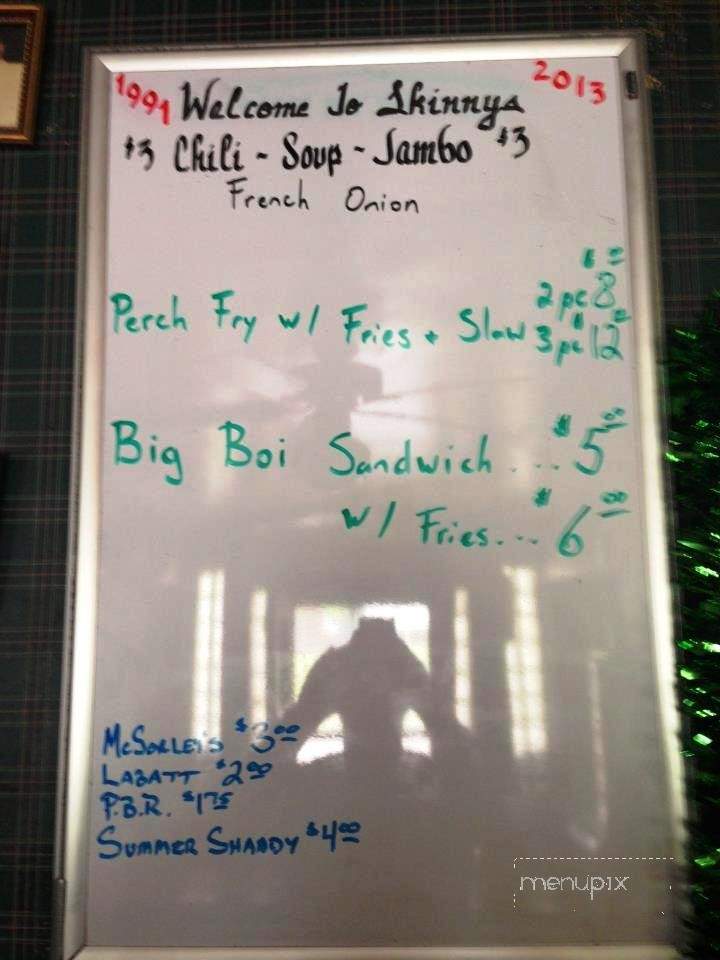 1991 Welcome To Skinnys 2013
$3 Chili - Soup - Jambo $3
French Onion
Perch Fry w/ Fries + Slaw 2pc $8.00
3pc $12.00
Big Boi Sandwich... $5.00
w/ Fries... $6.00
McSorley's $3.00
Labatt $2.00
P.B.R. $1.75
Summer Shandy $4.00
menupix